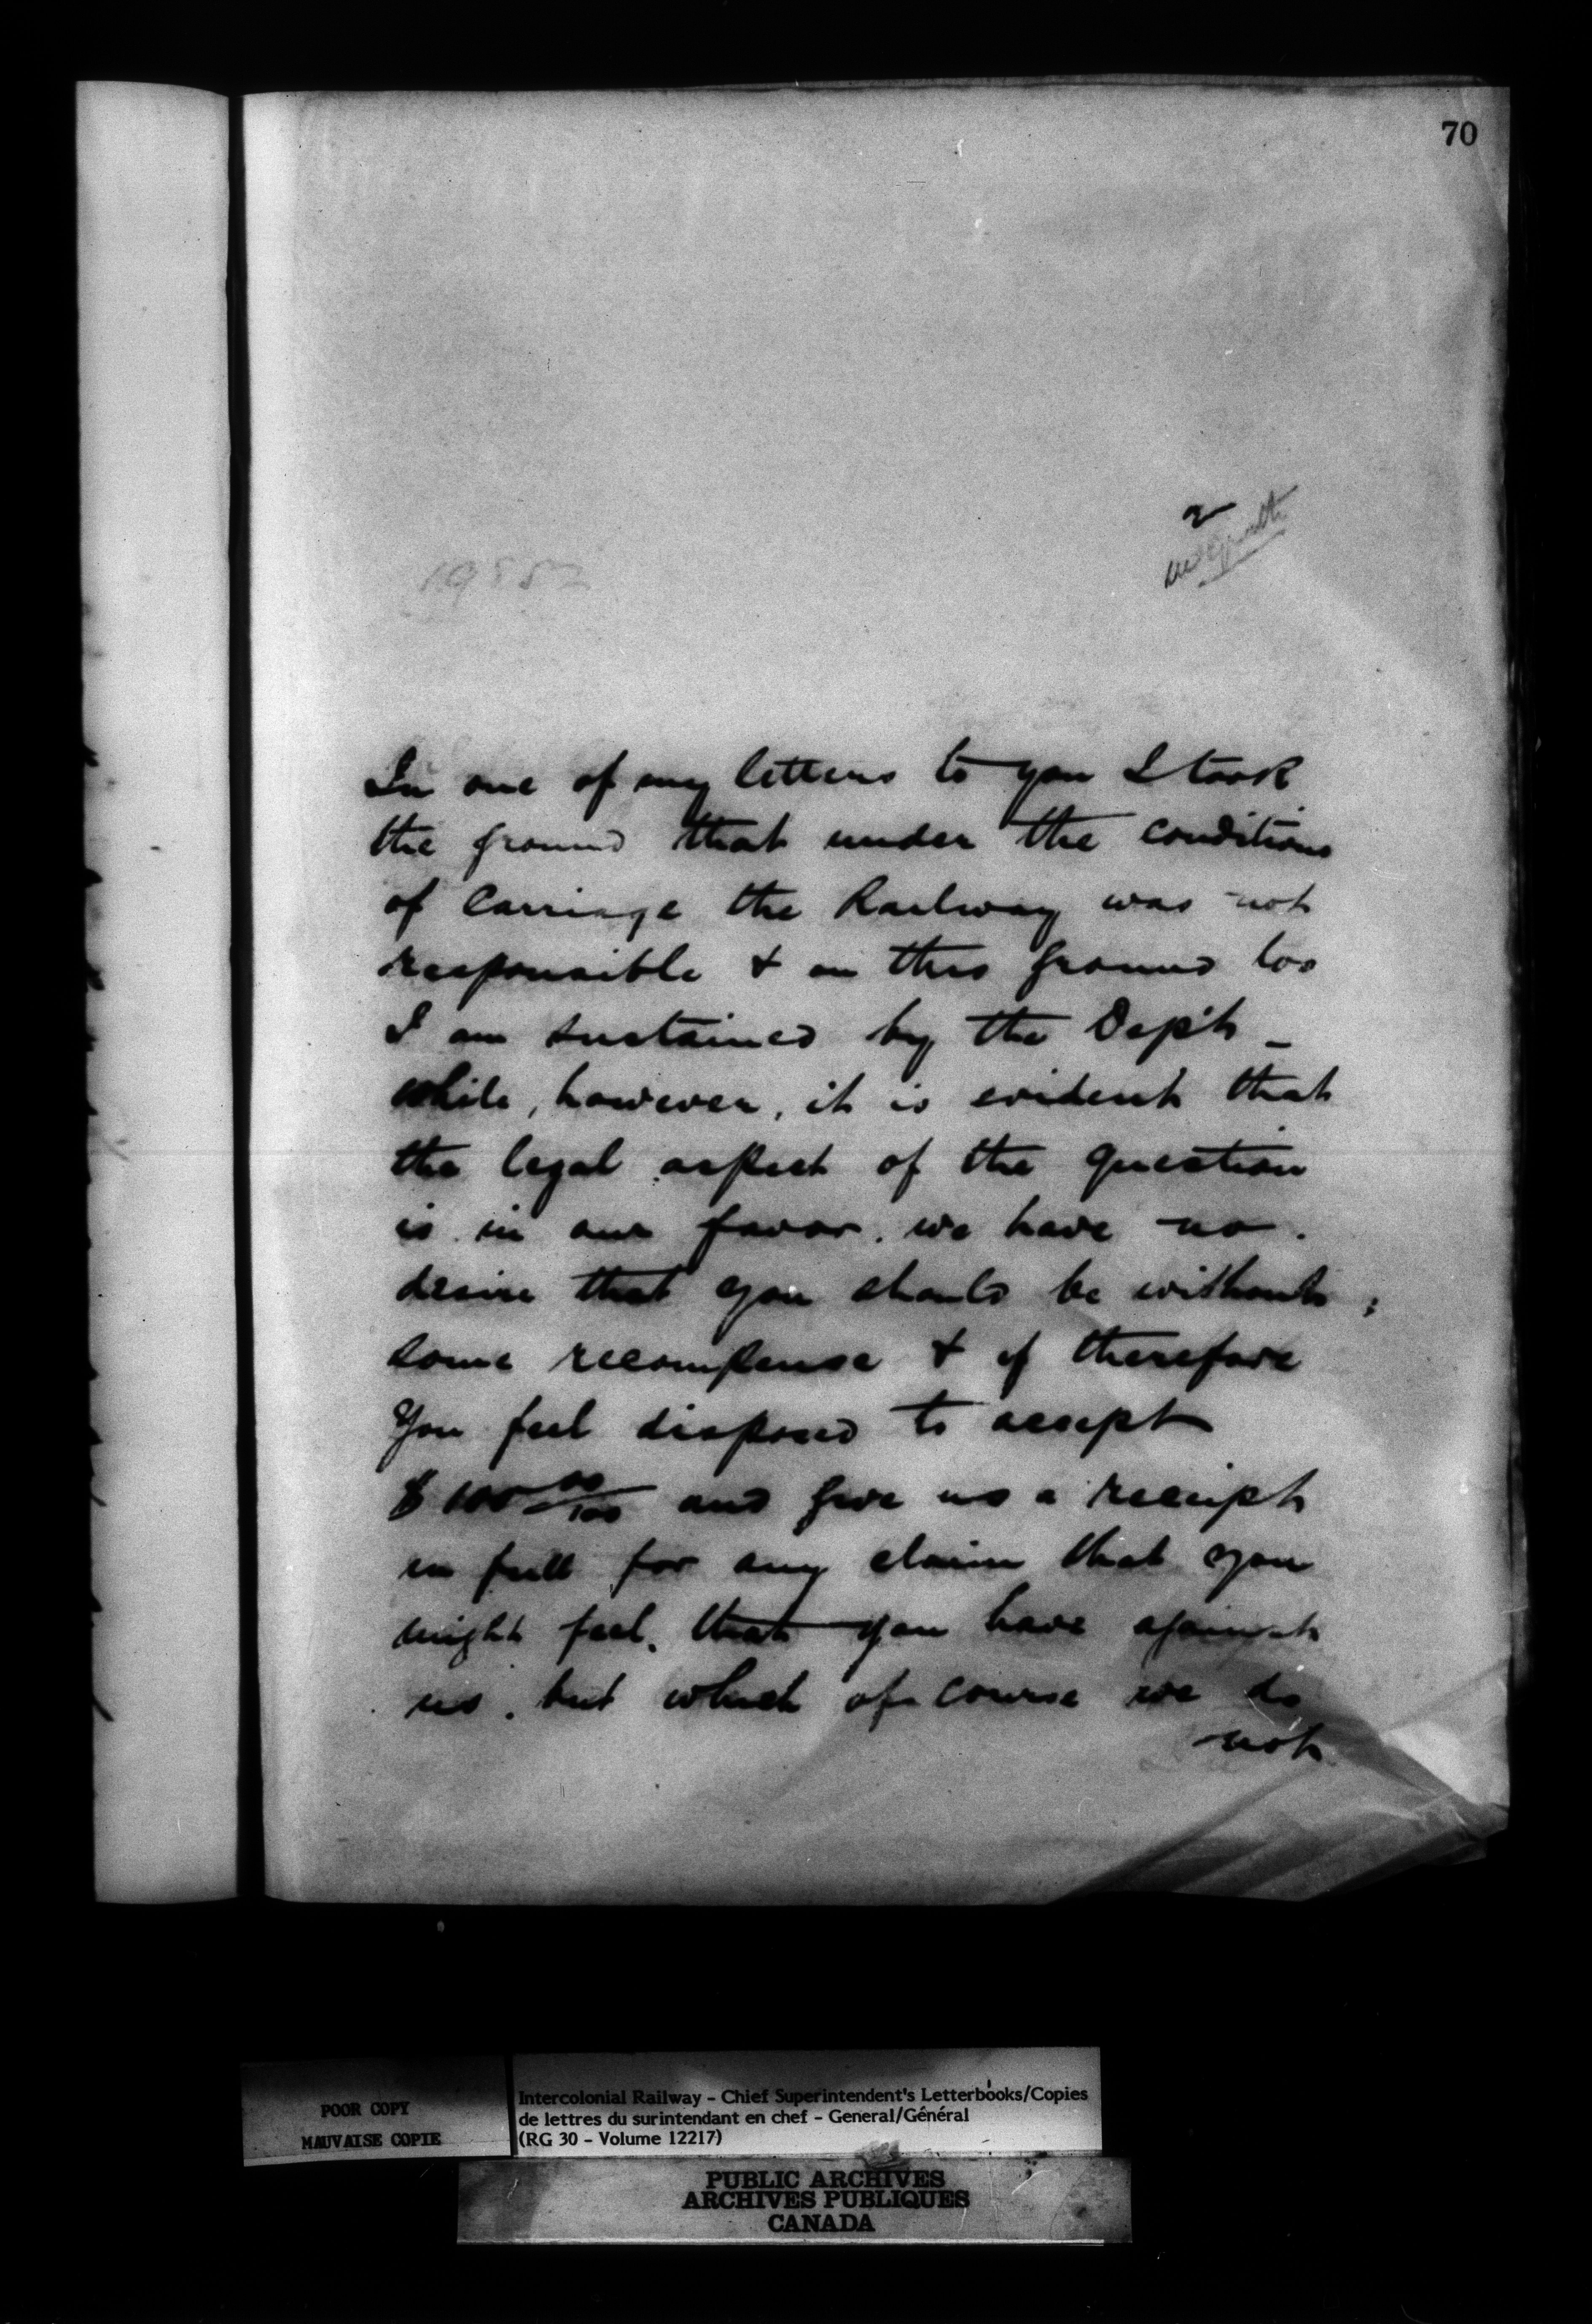 70
2
19552
In one of my letters to you I took
the ground that under the conditions
of Carriage the Railway was not
responsible & on this ground too
I am sustained by the Dep't –
while, however, it is evident that
the legal aspect of the question
is in our favor. we have no
desire that you should be without
some recompense & if therefore
You feel disposed to accept
$100 00/100 and give us a receipt
in full for any claim that you
might feel, that you have against
us, but which of course we do
not
POOR COPY
MAUVAISE COPIE
Intercolonial Railway - Chief Superintendent's Letterbooks/Copies
de lettres du surintendant en chef - General/Général
(RG 30 - Volume 12217)
PUBLIC ARCHIVES
ARCHIVES PUBLIQUES
CANADA